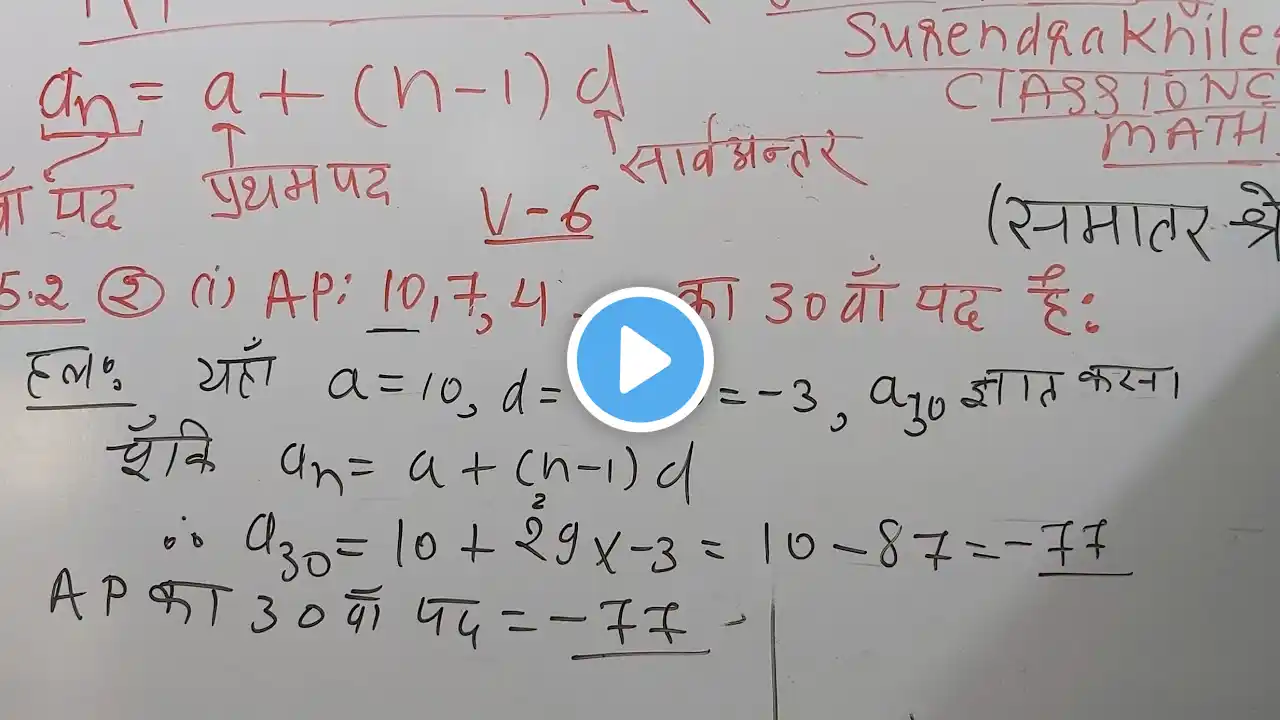 Surendra Khile
an = a + (n-1) d
CLASS 10 NC
MATH
वाँ पद प्रथम पद सार्व अन्तर
V-6
(समातर श्रे
5.2 (2) (i) AP: 10, 7, 4 का 30 वाँ पद है:
हलः यहाँ a = 10, d = = -3, a30 ज्ञात करना
चूँकि an = a + (n-1) d
∴ a30 = 10 + 29 x -3 = 10 - 87 = -77
AP का 30 वाँ पद = -77